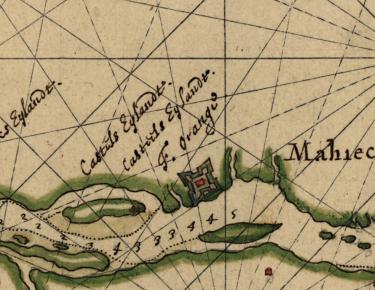 Eylandt.
Castels Eylandt.
Castels Eylandt.
F. Orangie
Mahiec
2 2 2 3 3 4 3 3 4 4 5